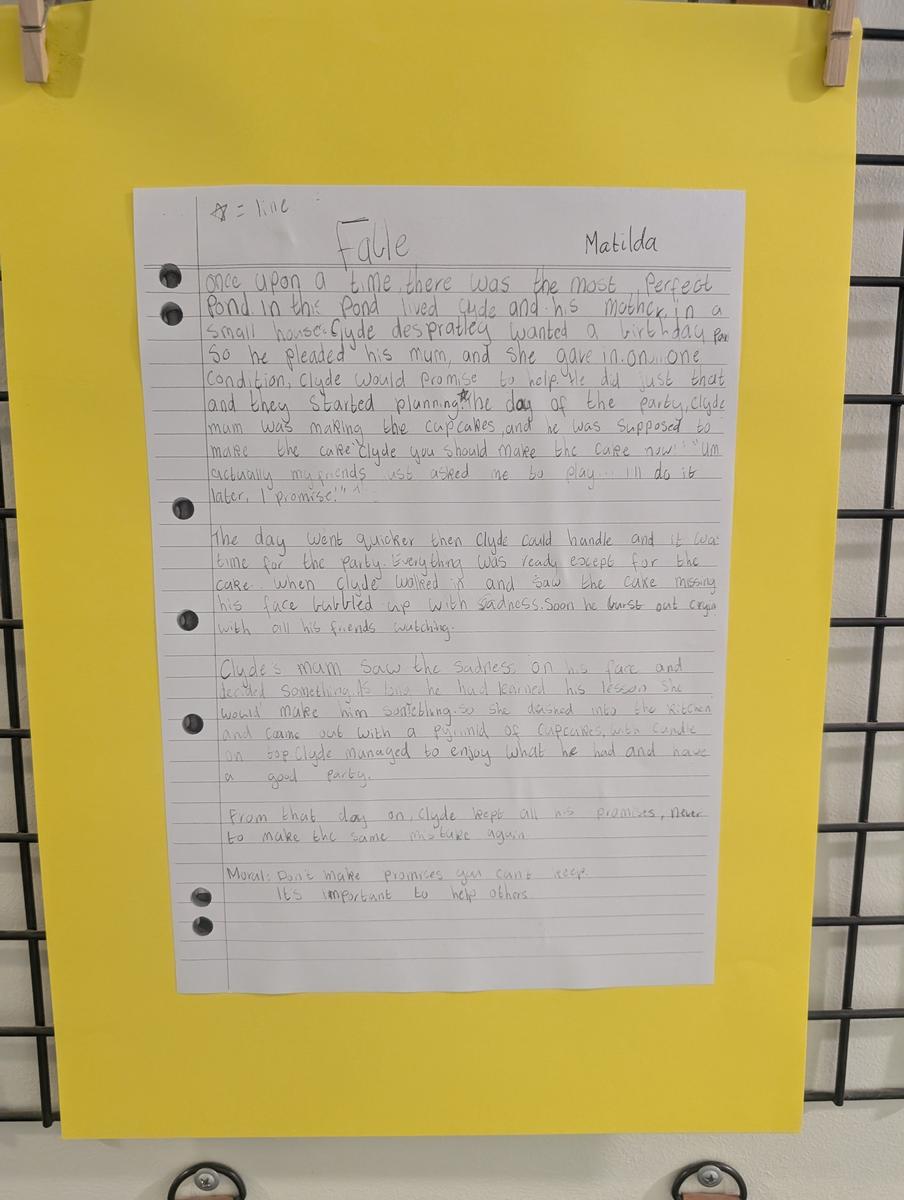 ☆ = line
Fable
Matilda
once upon a time, there was the most Perfect
Pond. In this Pond lived clyde and his mother, in a
small house. Clyde despratley wanted a birthday Par
So he pleaded his mum, and she gave in. on... one
Condition, Clyde would Promise to help. He did just that
and they started planning.☆The day of the party, Clyde
mum was making the cupcakes, and he was supposed to
make the cake "Clyde you should make the cake now!" "Um
actually my friends just asked me to play... I'll do it
later, I promise!"
The day went quicker then Clyde could handle and it wa
time for the party. Everything was ready except for the
cake. When Clyde walked in and saw the cake missing
his face bubbled up with sadness. Soon he burst out cryin
with all his friends watching.
Clyde's mum saw the sadness on his face and
decided something. As long he had learned his lesson she
would make him something. so she dashed into the kitchen
and came out with a pyrimid of cupcakes, with candle
on top Clyde managed to enjoy what he had and have
a good party.
From that day on, Clyde kept all his promises, never
to make the same mistake again
Moral: Don't make promises you can't keep.
It's important to help others